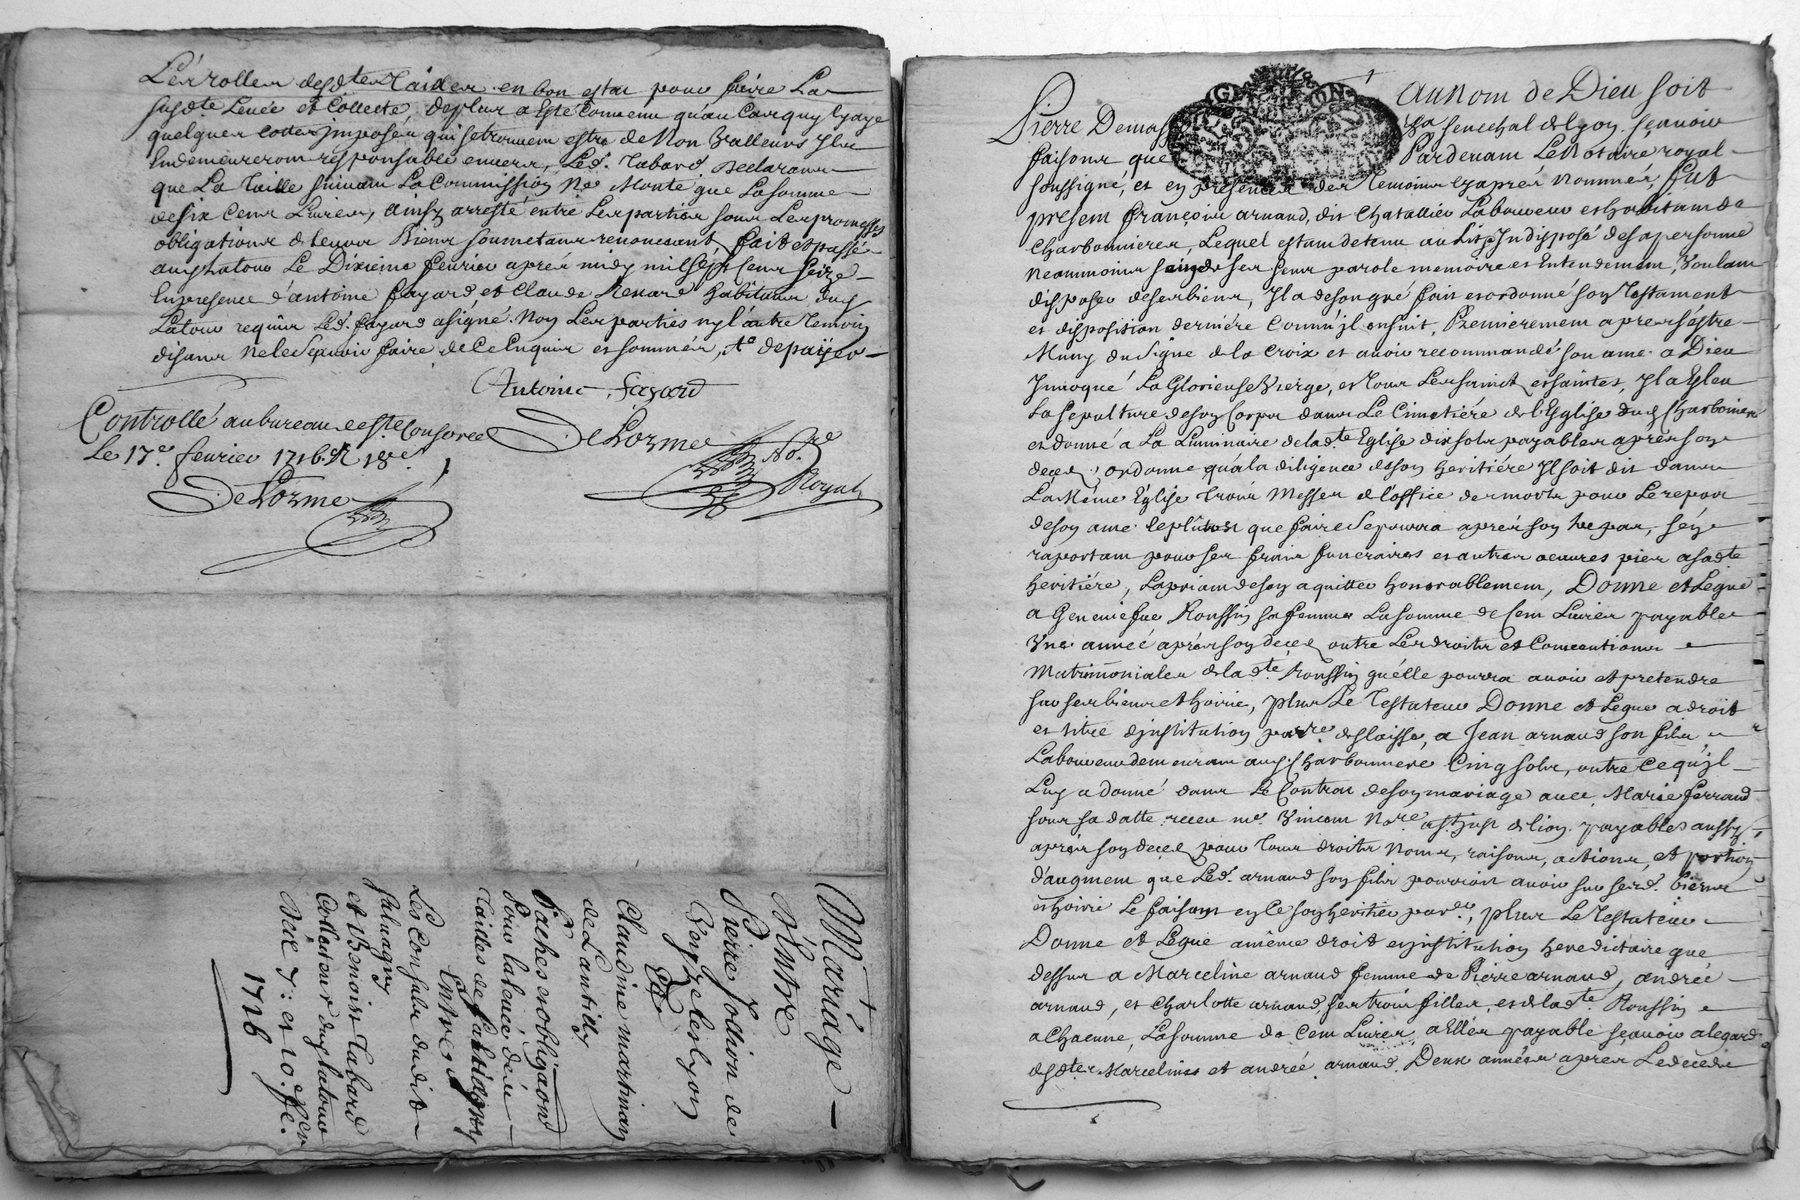 Les rolles desd.tes Tailles en bon estat pour faire La
susd.te Levée et Collecte, deplus a Esté Convenu qu'au Cas quy Lyaye
quelques Cottes jmposéés qui setrouvent estre de Non Valleurs Jls
Endemeureront responsables envers, Led. Tabard. Declarant
que La Taille suivant La Commission Ne Monte que La somme
desix Cent Livres, ainsy arresté entre Les parties sous Les promesses
obligations de leurs Biens soumetans renoncant, fait et passé
La tour Le Dixieme feurier aprés midy mil sept Cent seize
En presence d'antoine fayard, et Claude Renard habitans dud.
Latour requis Led. fayard a signé. Non Les parties ny l'autre temoin
disant Nele sçavoir faire de Ce Enquis et sommés, Ac. depaÿer
Antoine fayard
Controllé au bureau de Ste Consorce
Le 17e feurier 1716. R 18s
DeLorme
DeLorme No.re
Royal
Mariage
D'Entre
Pierre Jollion de
Claudine martinan
de Lantilly
Paches et obligaons
Pour la levée des
Tailles de
Entre
Les Consuls dudit
et Benoist Tabard
Collecteur dud. Latour
Des 7: et 10. fe.
1716
Au Nom de Dieu Soit
Pierre Demas
Senechal de Lyon. sçavoir
faisons que
Pardevant Le Notaire royal
soussigné, et en presence des Temoins Cy aprés Nommés, fut
present françois arnaud, dit Chatallier Laboureur et habitant de
Charbonnieres, Lequel estant detenu au Lit Indisposé desa personne
Neantmoins sain de ses sens parole memoire et Entendement, Voulant
disposer deses biens, Jl a deson gré fait et ordonné son Testament
et disposition derniére Comm'jl ensuit, Premierement aprés s'estre
Muny du Signe de la Croix et avoir recommandé son ame a Dieu
Jnvoqué La Glorieuse Vierge, et Tous Les saincts et saintes, Jl a Eleu
La sepulture deson Corps dans Le Cimetiére de l'Eglise dud. Charbonieres
et donné a La Luminaire de lad.te Eglise dix sols payables aprés son
deceds, ordonne qu'a la diligence deson heritiére Jl soit dit dans
La Même Eglise Trois Messes de l'office des morts pour Le repos
de son ame leplutost que faire Se pourra aprés son trepas, s'en
raportant pour ses frais funeraires et autres oeuvres pies a sad.te
heritiére, La priant de s'en aquitter honorablement, Donne et Legue
a Genevieve Roussin sa femme La somme de Cent Livres payable
Vne année aprés son deceds outre Les droits et Conventions
Matrimoniales de lad.te Roussin qu'elle pourra avoir et pretendre
sur ses biens et hoirie, plus Le Testateur Donne et Legue a droit
et titre d'jnstitution par.re delaisse, a Jean arnaud son fils
Laboureur demeurant aud. Charbonniere Cinq sols, outre Ce qu'jl
Luy a donné dans Le Contrat de son mariage avec Marie ferrand
sous sa datte receu me. Vincent No.re a st. Just de lion payables aussy
aprés son deceds pour Tous droits Noms, raisons, actions, et portion
d'augment que Led. arnaud son fils pourroit avoir sur sesd. biens
et hoirie Le faisant en Ce son heritier par.er, plus Le Testateur
Donne et Legue a même droit et jnstitution hereditaire que
dessus a Marceline arnaud femme de Pierre arnaud, andréé
arnaud, et Charlotte arnaud ses trois filles, et de lad.te Roussin
a Chacune, La somme de Cent Livres, a Elles payable sçavoir a legard
desd.tes Marceline et andréé arnaud Deux années aprés Le deced